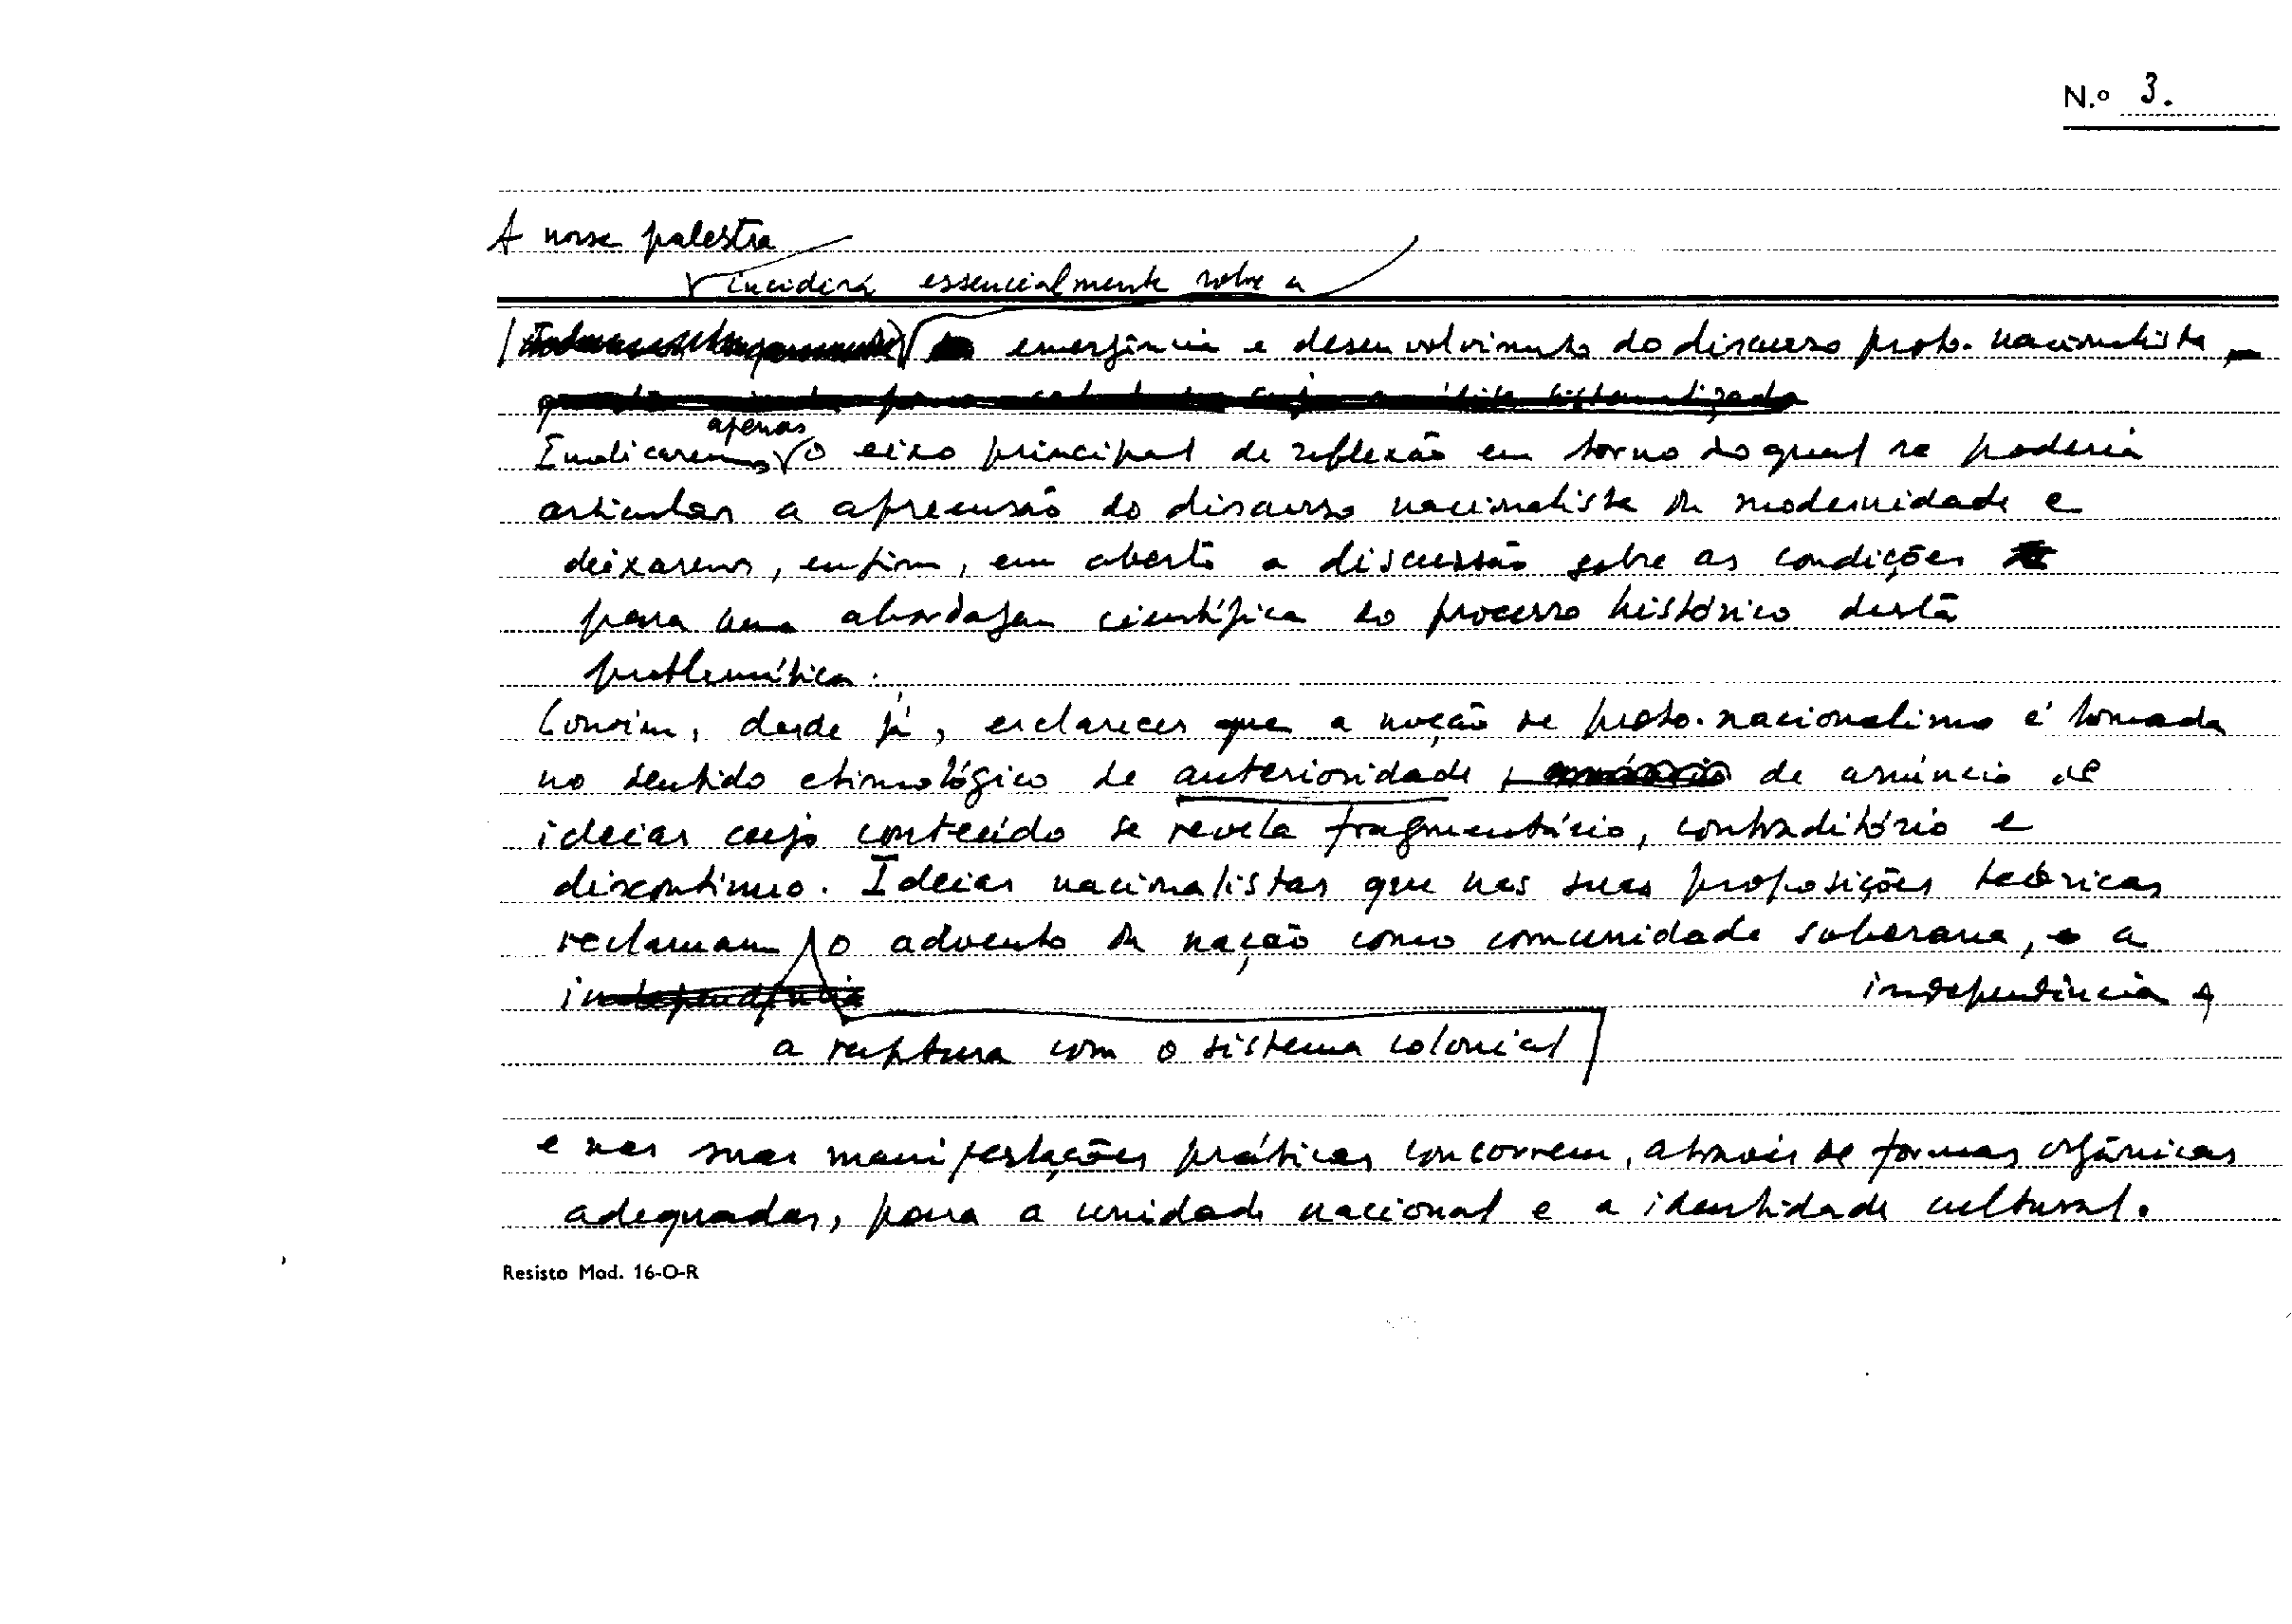 N.º 3.
A nossa palestra
incidirá essencialmente sobre a
emergência e desenvolvimento do discurso proto-nacionalista
apenas
Indicaremos o eixo principal de reflexão em torno do qual se poderia
articular a apreensão do discurso nacionalista da modernidade e
deixaremos, enfim, em aberto a discussão sobre as condições
para uma abordagem científica do processo histórico desta
problemática.
Convém, desde já, esclarecer que a noção de proto-nacionalismo é tomada
no sentido etimológico de anterioridade, de anúncio de
ideias cujo conteúdo se revela fragmentário, contraditório e
discontinuo. Ideias nacionalistas que nas suas proposições teóricas
reclamam o advento da nação como comunidade soberana, a
independência
independência
a ruptura com o sistema colonial
e nas suas manifestações práticas concorrem, através de formas orgânicas
adequadas, para a unidade nacional e a identidade cultural.
Resisto Mod. 16-O-R